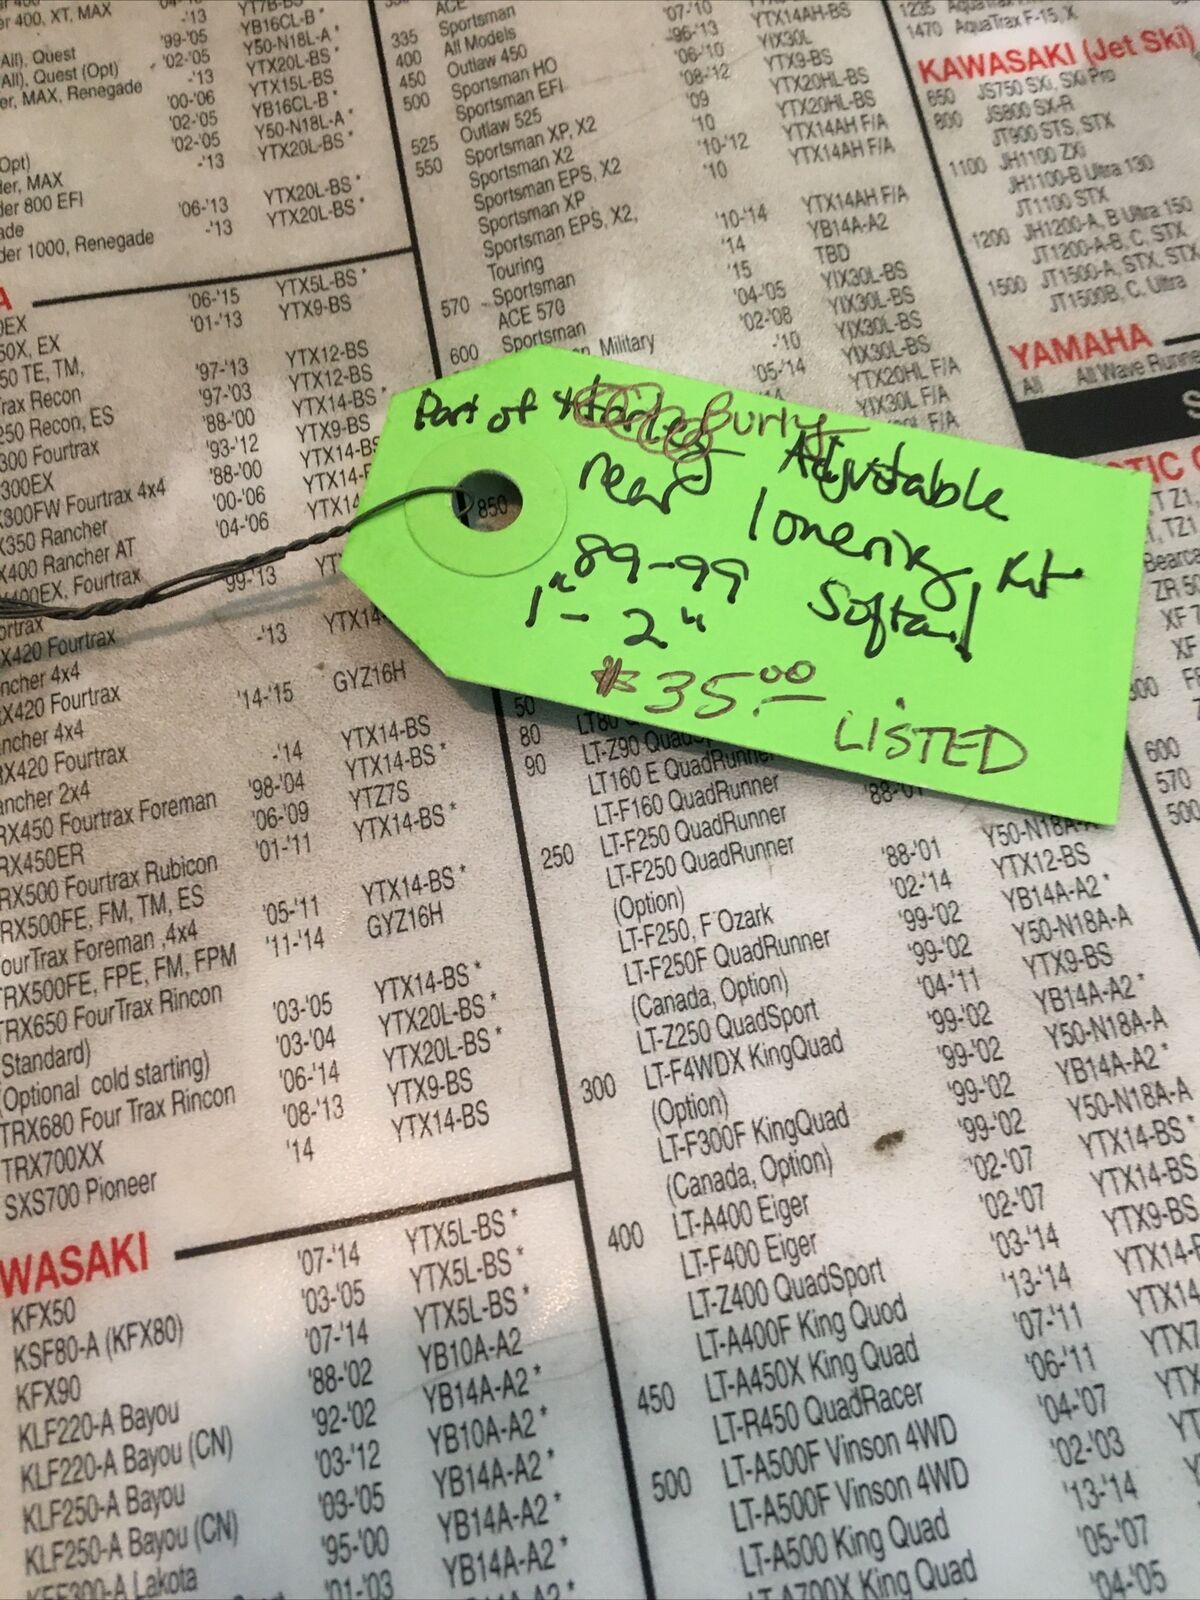 er 400, XT, MAX
All), Quest
All), Quest (Opt)
er, MAX, Renegade
Opt)
der, MAX
der 800 EFI
ade
der 1000, Renegade
-'13
'99-'05
'02-'05
-'13
'00-'06
'02-'05
'02-'05
-'13
'06-'13
-'13
YB16CL-B *
Y50-N18L-A *
YTX20L-BS *
YTX15L-BS
YB16CL-B *
Y50-N18L-A *
YTX20L-BS *
YTX20L-BS *
YTX20L-BS *
335 Sportsman
400 All Models
450 Outlaw 450
500 Sportsman HO
Sportsman EFI
525 Outlaw 525
550 Sportsman XP, X2
Sportsman X2
Sportsman EPS, X2
Sportsman XP
Sportsman EPS, X2,
Touring
570 Sportsman
ACE 570
600 Sportsman
Military
'07-'10
'96-'13
'06-'10
'08-'12
'09
'10
'10-'12
'10
'10-'14
'14
'15
'04-'05
'02-'08
-'10
'05-'14
YTX14AH-BS
YIX30L
YTX9-BS
YTX20HL-BS
YTX20HL-BS
YTX14AH F/A
YTX14AH F/A
YTX14AH F/A
YB14A-A2
TBD
YIX30L-BS
YIX30L-BS
YIX30L-BS
YIX30L-BS
YTX20HL F/A
YIX30L F/A
1235
1470 AquaTrax F-15, X
KAWASAKI (Jet Ski)
650 JS750 SXi, SXi Pro
800 JS800 SX-R
JT900 STS, STX
1100 JH1100 ZXi
JH1100-B Ultra 130
JT1100 STX
1200 JH1200-A, B Ultra 150
JT1200-A-B, C, STX
1500 JT1500-A, STX, STX
JT1500B, C, Ultra
YAMAHA
All All Wave Runner
Part of Burly
rear Adjustable
lowering Kit
89-99 Softail
1"-2"
$35.00 LISTED
850
A
0EX
50X, EX
50 TE, TM,
rax Recon
250 Recon, ES
300 Fourtrax
300EX
X300FW Fourtrax 4x4
X350 Rancher
X400 Rancher AT
X400EX, Fourtrax
ortrax
X420 Fourtrax
ncher 4x4
RX420 Fourtrax
ancher 4x4
RX420 Fourtrax
ancher 2x4
RX450 Fourtrax Foreman
RX450ER
RX500 Fourtrax Rubicon
RX500FE, FM, TM, ES
ourTrax Foreman ,4x4
TRX500FE, FPE, FM, FPM
TRX650 FourTrax Rincon
(Standard)
(Optional cold starting)
TRX680 Four Trax Rincon
TRX700XX
SXS700 Pioneer
'06-'15
'01-'13
'97-'13
'97-'03
'88-'00
'93-'12
'88-'00
'00-'06
'04-'06
'99-'13
-'13
'14-'15
-'14
'98-'04
'06-'09
'01-'11
'05-'11
'11-'14
'03-'05
'03-'04
'06-'14
'08-'13
'14
YTX5L-BS *
YTX9-BS
YTX12-BS
YTX12-BS
YTX14-BS *
YTX9-BS
YTX14-BS
YTX14
YTX14
YTX14-
GYZ16H
YTX14-BS
YTX14-BS *
YTZ7S
YTX14-BS *
YTX14-BS *
GYZ16H
YTX14-BS *
YTX20L-BS *
YTX20L-BS *
YTX9-BS
YTX14-BS
WASAKI
KFX50
KSF80-A (KFX80)
KFX90
KLF220-A Bayou
KLF220-A Bayou (CN)
KLF250-A Bayou
KLF250-A Bayou (CN)
KEF300-A Lakota
'07-'14
'03-'05
'07-'14
'88-'02
'92-'02
'03-'12
'03-'05
'95-'00
'01-'03
YTX5L-BS *
YTX5L-BS *
YTX5L-BS *
YB10A-A2
YB14A-A2 *
YB10A-A2 *
YB14A-A2 *
YB14A-A2 *
YB14A-A2 *
50
80 LT80
90 LT-Z90 QuadSp
LT160 E QuadRunner
LT-F160 QuadRunner
LT-F250 QuadRunner
250 LT-F250 QuadRunner
(Option)
LT-F250, F Ozark
LT-F250F QuadRunner
(Canada, Option)
LT-Z250 QuadSport
LT-F4WDX KingQuad
300 (Option)
LT-F300F KingQuad
(Canada, Option)
400 LT-A400 Eiger
LT-F400 Eiger
LT-Z400 QuadSport
LT-A400F King Quod
LT-A450X King Quad
450 LT-R450 QuadRacer
LT-A500F Vinson 4WD
500 LT-A500F Vinson 4WD
LT-A500 King Quad
LT-A700X King Quad
'88-'01
'88-'01
'02-'14
'99-'02
'99-'02
'04-'11
'99-'02
'99-'02
'99-'02
'99-'02
'02-'07
'02-'07
'03-'14
'13-'14
'07-'11
'06-'11
'04-'07
'02-'03
'13-'14
'05-'07
'04-'05
Y50-N18A-A
YTX12-BS
YB14A-A2 *
Y50-N18A-A
YTX9-BS
YB14A-A2 *
Y50-N18A-A
YB14A-A2 *
Y50-N18A-A
YTX14-BS *
YTX14-BS
YTX9-BS
YTX14-
YTX14
YTX7
YTX
TIC C
T Z1,
, TZ1
Bearca
ZR 50
XF 7
XF
600
570
500